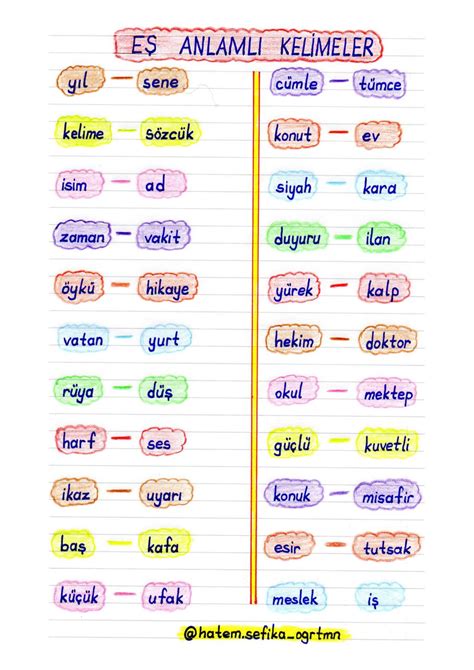 EŞ ANLAMLI KELİMELER
yıl — sene
kelime — sözcük
isim — ad
zaman — vakit
öykü — hikaye
vatan — yurt
rüya — düş
harf — ses
ikaz — uyarı
baş — kafa
küçük — ufak
cümle — tümce
konut — ev
siyah — kara
duyuru — ilan
yürek — kalp
hekim — doktor
okul — mektep
güçlü — kuvetli
konuk — misafir
esir — tutsak
meslek iş
@hatem.sefika_ogrtmn